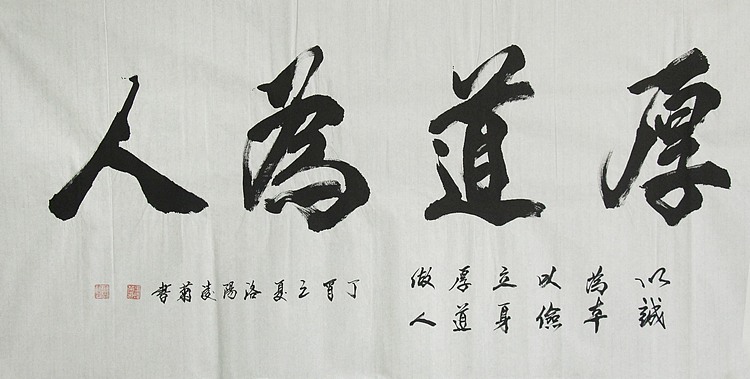 厚道為人
以誠
為本
以儉
立身
厚道
做人
丁酉之夏洛陽凌菊書